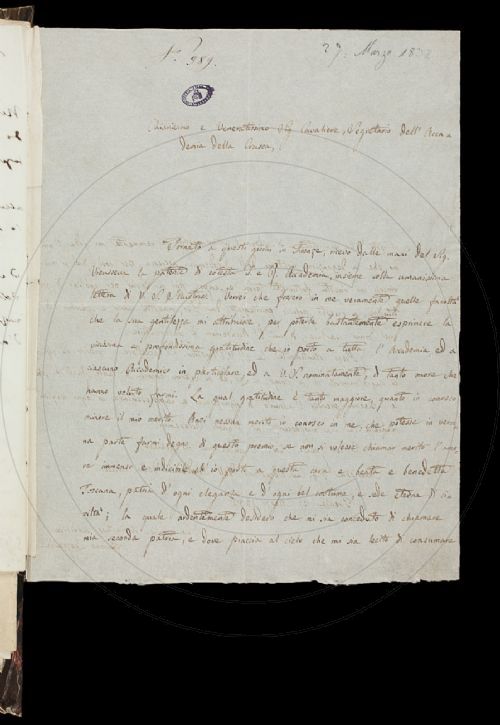 N.° 989.
27. Marzo 1832
Chiarissimo e Veneratissimo Sig. Cavaliere, Segretario dell' Acca
demia della Crusca,
Tornato a questi giorni in Firenze, ricevo dalle mani del Sig.
Vieusseux la patente di cotesta I. e R. Accademia, insieme colla umanissima
lettera di V. S. Illustris. Vorrei che fossero in me veramente quelle facoltà
che la sua gentilezza mi attribuisce, per poterle bastantemente esprimere la
viva e profondissima gratitudine che io porto a tutta l' Accademia ed a
ciascuno Accademico in particolare ed a V. S. nominatamente, di tanto onore che
hanno voluto farmi. La qual gratitudine è tanto maggiore, quanto io conosco
minore il mio merito. Anzi nessun merito io conosco in me, che potesse in veru
na parte farmi degno di questo premio, se non si volesse chiamar merito l' amo
re immenso e indicibile ch' io porto a questa cara e beata e benedetta
Toscana, patria d' ogni eleganza e d' ogni bel costume, e sede eterna di ci
viltà; la quale ardentemente desidero che mi sia conceduto di chiamare
mia seconda patria, e dove piaccia al cielo che mi sia lecito di consumare